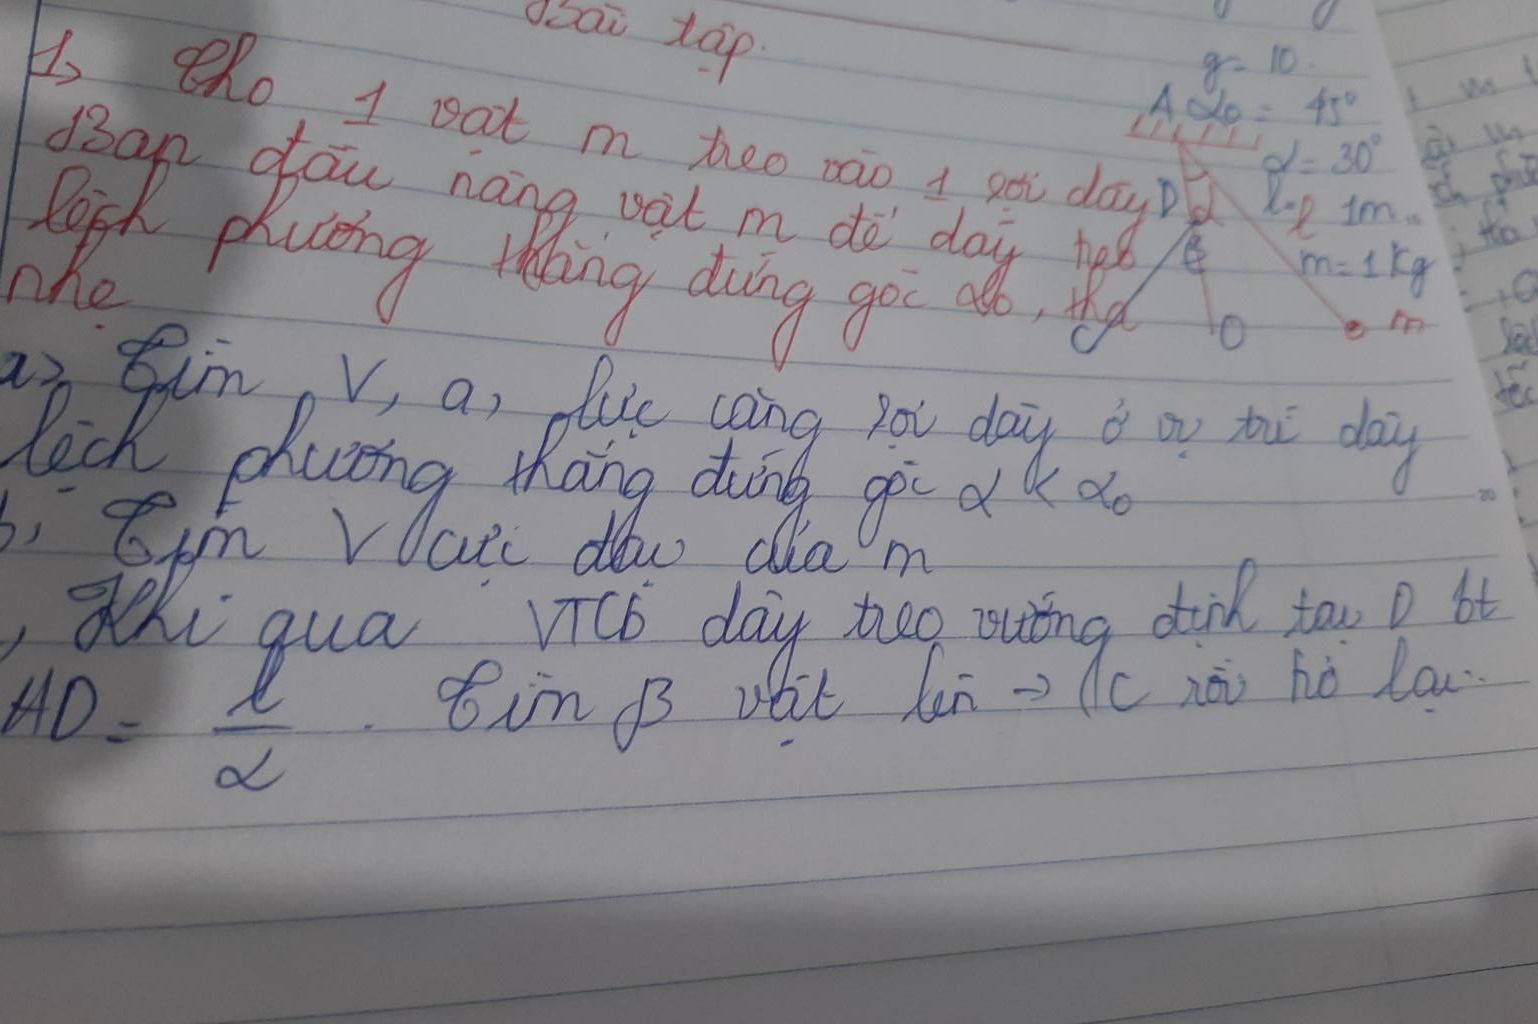 Bài tập.
g = 10.
A α₀ = 45°
1, Cho 1 vật m treo vào 1 sợi dây
α = 30°
D α
l = 1m.
Ban đầu nâng vật m để dây treo
β
m = 1kg
lệch phương thẳng đứng góc α₀, thả
C O m
nhẹ
a, Tìm V, a, lực căng sợi dây ở vị trí dây
lệch phương thẳng đứng góc α < α₀
b, Tìm V cực đại của m
, Khi qua VTCB dây treo vướng đinh tại D bt
AD = l/2 . Tìm β vật lên → C rồi trở lại.